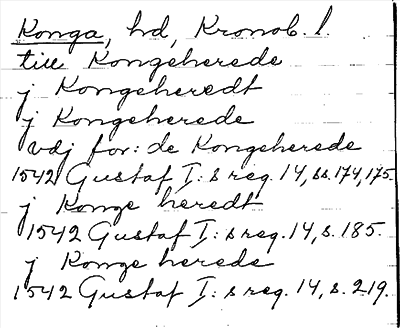 Konga, hd, Kronob. l.
till Kongeherede
j Kongeheredt
j Kongeherede
vdj for:de Kongeherede
1542 Gustaf I:s reg. 14, ss. 174, 175.
j Konge heredt
1542 Gustaf I:s reg. 14, s. 185.
j Konge herede
1542 Gustaf I:s reg. 14, s. 219.